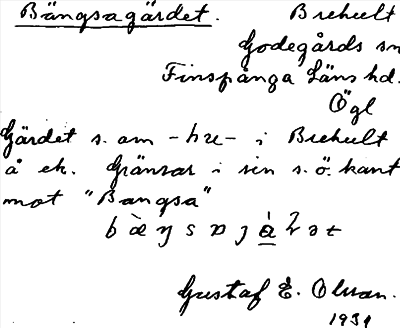 Bängsagärdet. Brehult
Godegårds sn
Finspånga Läns hd.
Ögl
Gärdet s. om -hu- i Brehult
å ek. Gränsar i sin s.ö. kant
mot "Bangsa"
Gustaf E. Olsson.
1931